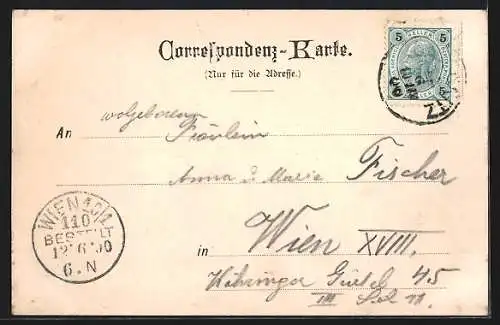 Correspondenz-Karte.
(Nur für die Adresse.)
5 HELLER 5
5 5
wolgeboren
An Fräulein
Anna u Marie Fischer
in Wien XVIII.
Währinger Gürtel 45
III
WIEN 40/1
110
BESTELLT
12 6 00
6. N